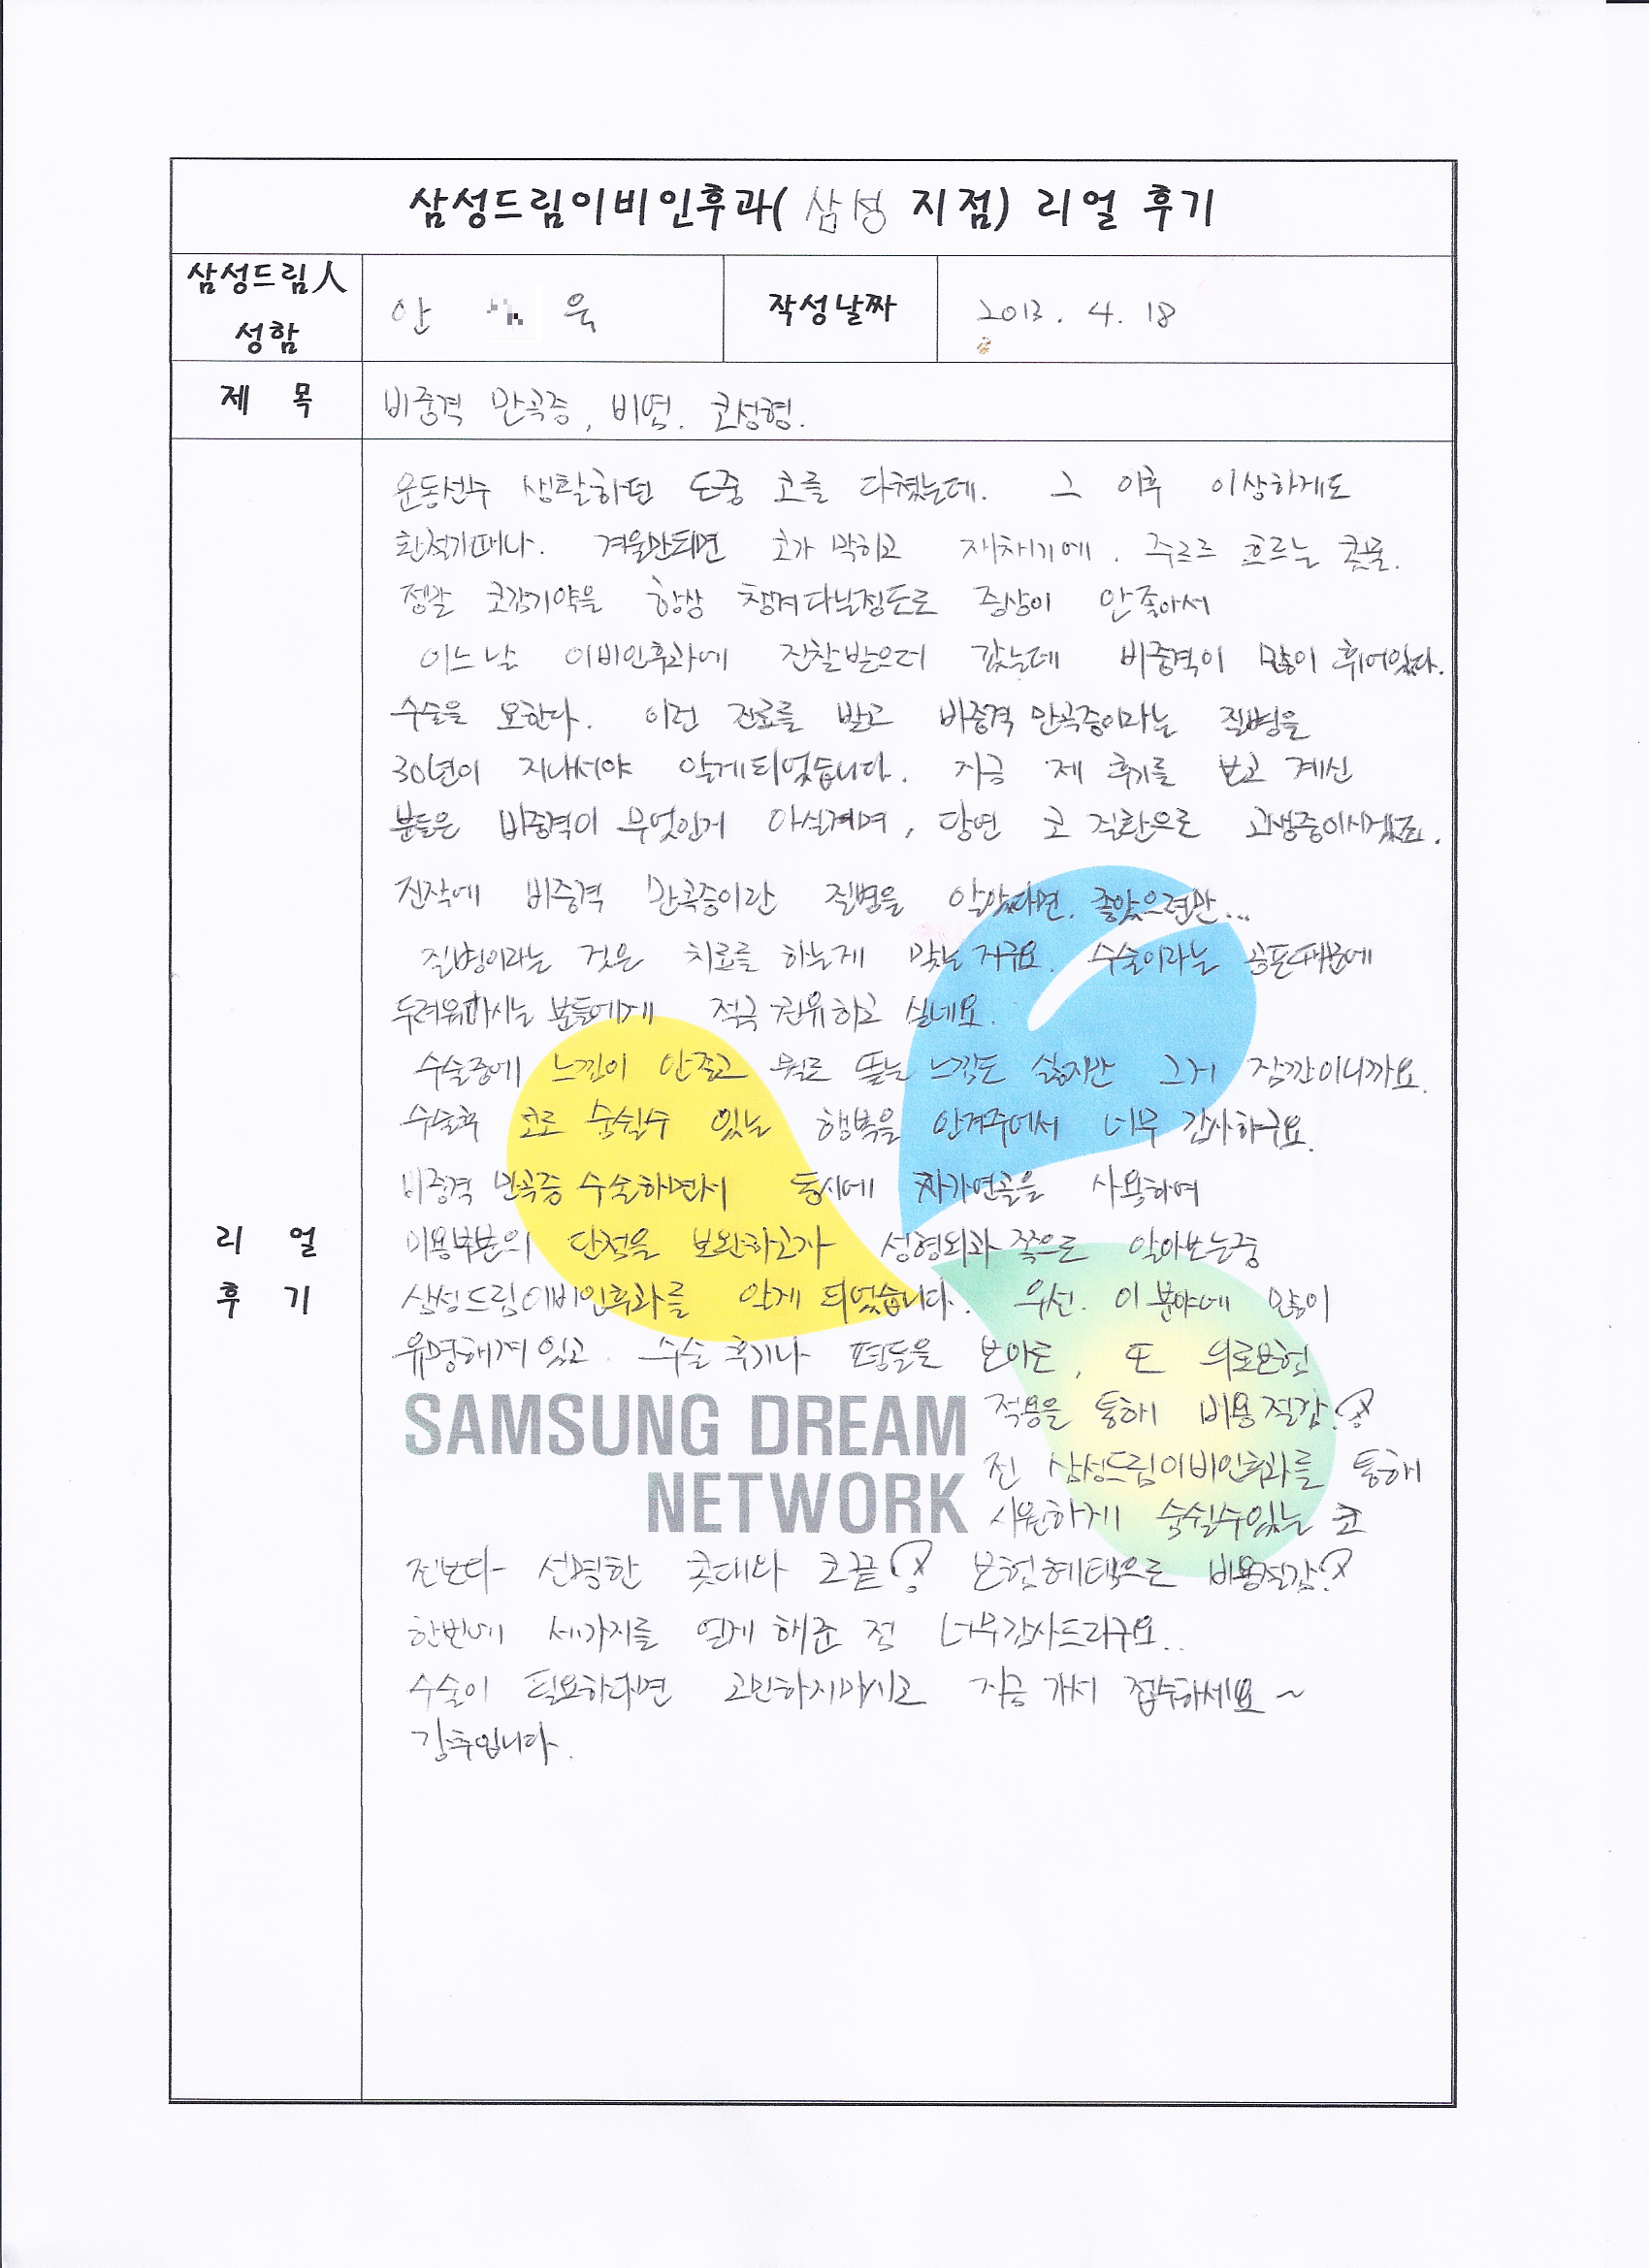 삼성드림이비인후과( 삼성 지점) 리얼 후기
삼성드림人
성함
안 욱
작성날짜
2013. 4. 18
제 목
비중격 만곡증, 비염. 코성형.
운동선수 생활하던 도중 코를 다쳤는데. 그 이후 이상하게도
환절기때나. 겨울만되면 코가 막히고 재채기에. 주르르 흐르는 콧물.
정말 코감기약을 항상 챙겨다닐정도로 증상이 안좋아서
어느날 이비인후과에 진찰받으러 갔는데 비중격이 많이 휘어있다.
수술을 요한다. 이런 진료를 받고 비중격 만곡증이라는 질병을
30년이 지나서야 알게되었습니다. 지금 제 후기를 보고 계신
분들은 비중격이 무엇인지 아실꺼며, 당연 코 질환으로 고생중이시겠죠.
진작에 비중격 만곡증이란 질병을 알았다면. 좋았으련만...
질병이라는 것은 치료를 하는게 맞는거구요. 수술이라는 공포때문에
두려워마시는 분들에게 적극 권유하고 싶네요.
수술중에 느낌이 안좋고 뭐로 뜯는 느낌도 싫지만 그거 잠깐이니까요.
수술후 코로 숨쉴수 있는 행복을 안겨주어서 너무 감사하구요.
비중격 만곡증 수술하면서 동시에 자가연골을 사용하여
미용부분의 단점을 보완하고자 성형외과 쪽으로 알아보는중
삼성드림이비인후과를 알게 되었습니다. 우선. 이 분야에 많이
유명해져 있고. 수술 후기나 평들을 보아도, 또 의료보험
적용을 통해 비용절감!
전 삼성드림이비인후과를 통해
시원하게 숨쉴수있는 코
전보다 선명한 콧대와 코끝! 보험혜택으로 비용절감!
한번에 세가지를 얻게 해준 점 너무감사드리구요..
수술이 필요하다면 고민하지마시고 지금 가서 접수하세요~
강추입니다.
리 얼
후 기
SAMSUNG DREAM
NETWORK